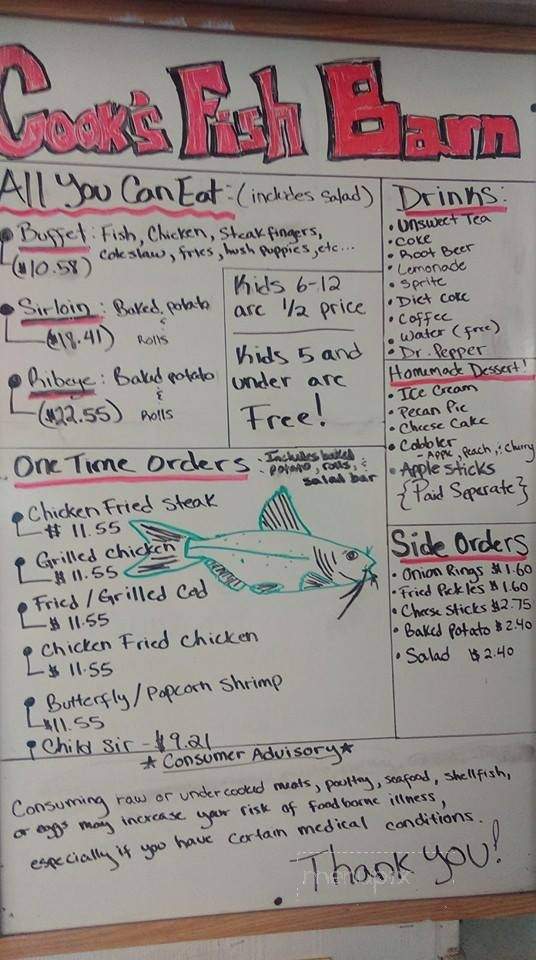 Cook's Fish Barn
All You Can Eat: (includes Salad)
Buffet: Fish, Chicken, Steak fingers,
cole slaw, fries, hush puppies, etc...
($10.58)
Sirloin: Baked potato
& Rolls
($18.41)
Ribeye: Baked potato
& Rolls
($22.55)
Kids 6-12
are 1/2 price
Kids 5 and
under are
Free!
One Time Orders: Includes baked
potato, rolls, &
salad bar
Chicken Fried Steak
$ 11.55
Grilled Chicken
$ 11.55
Fried/Grilled Cod
$ 11.55
Chicken Fried Chicken
$ 11.55
Butterfly/Popcorn Shrimp
$11.55
Child Sir - $9.21
Drinks:
• Unsweet Tea
• Coke
• Root Beer
• Lemonade
• Sprite
• Diet Coke
• Coffee
• Water (free)
• Dr. Pepper
Homemade Dessert!
• Ice Cream
• Pecan Pie
• Cheese Cake
• Cobbler
- Apple, Peach, & Cherry
• Apple Sticks
{Paid Seperate}
Side Orders
• Onion Rings $1.60
• Fried Pickles $1.60
• Cheese Sticks $2.75
• Baked Potato $2.40
• Salad $2.40
* Consumer Advisory *
Consuming raw or undercooked meats, poultry, seafood, shellfish,
or eggs may increase your risk of foodborne illness,
especially if you have certain medical conditions.
Thank you!
menupix